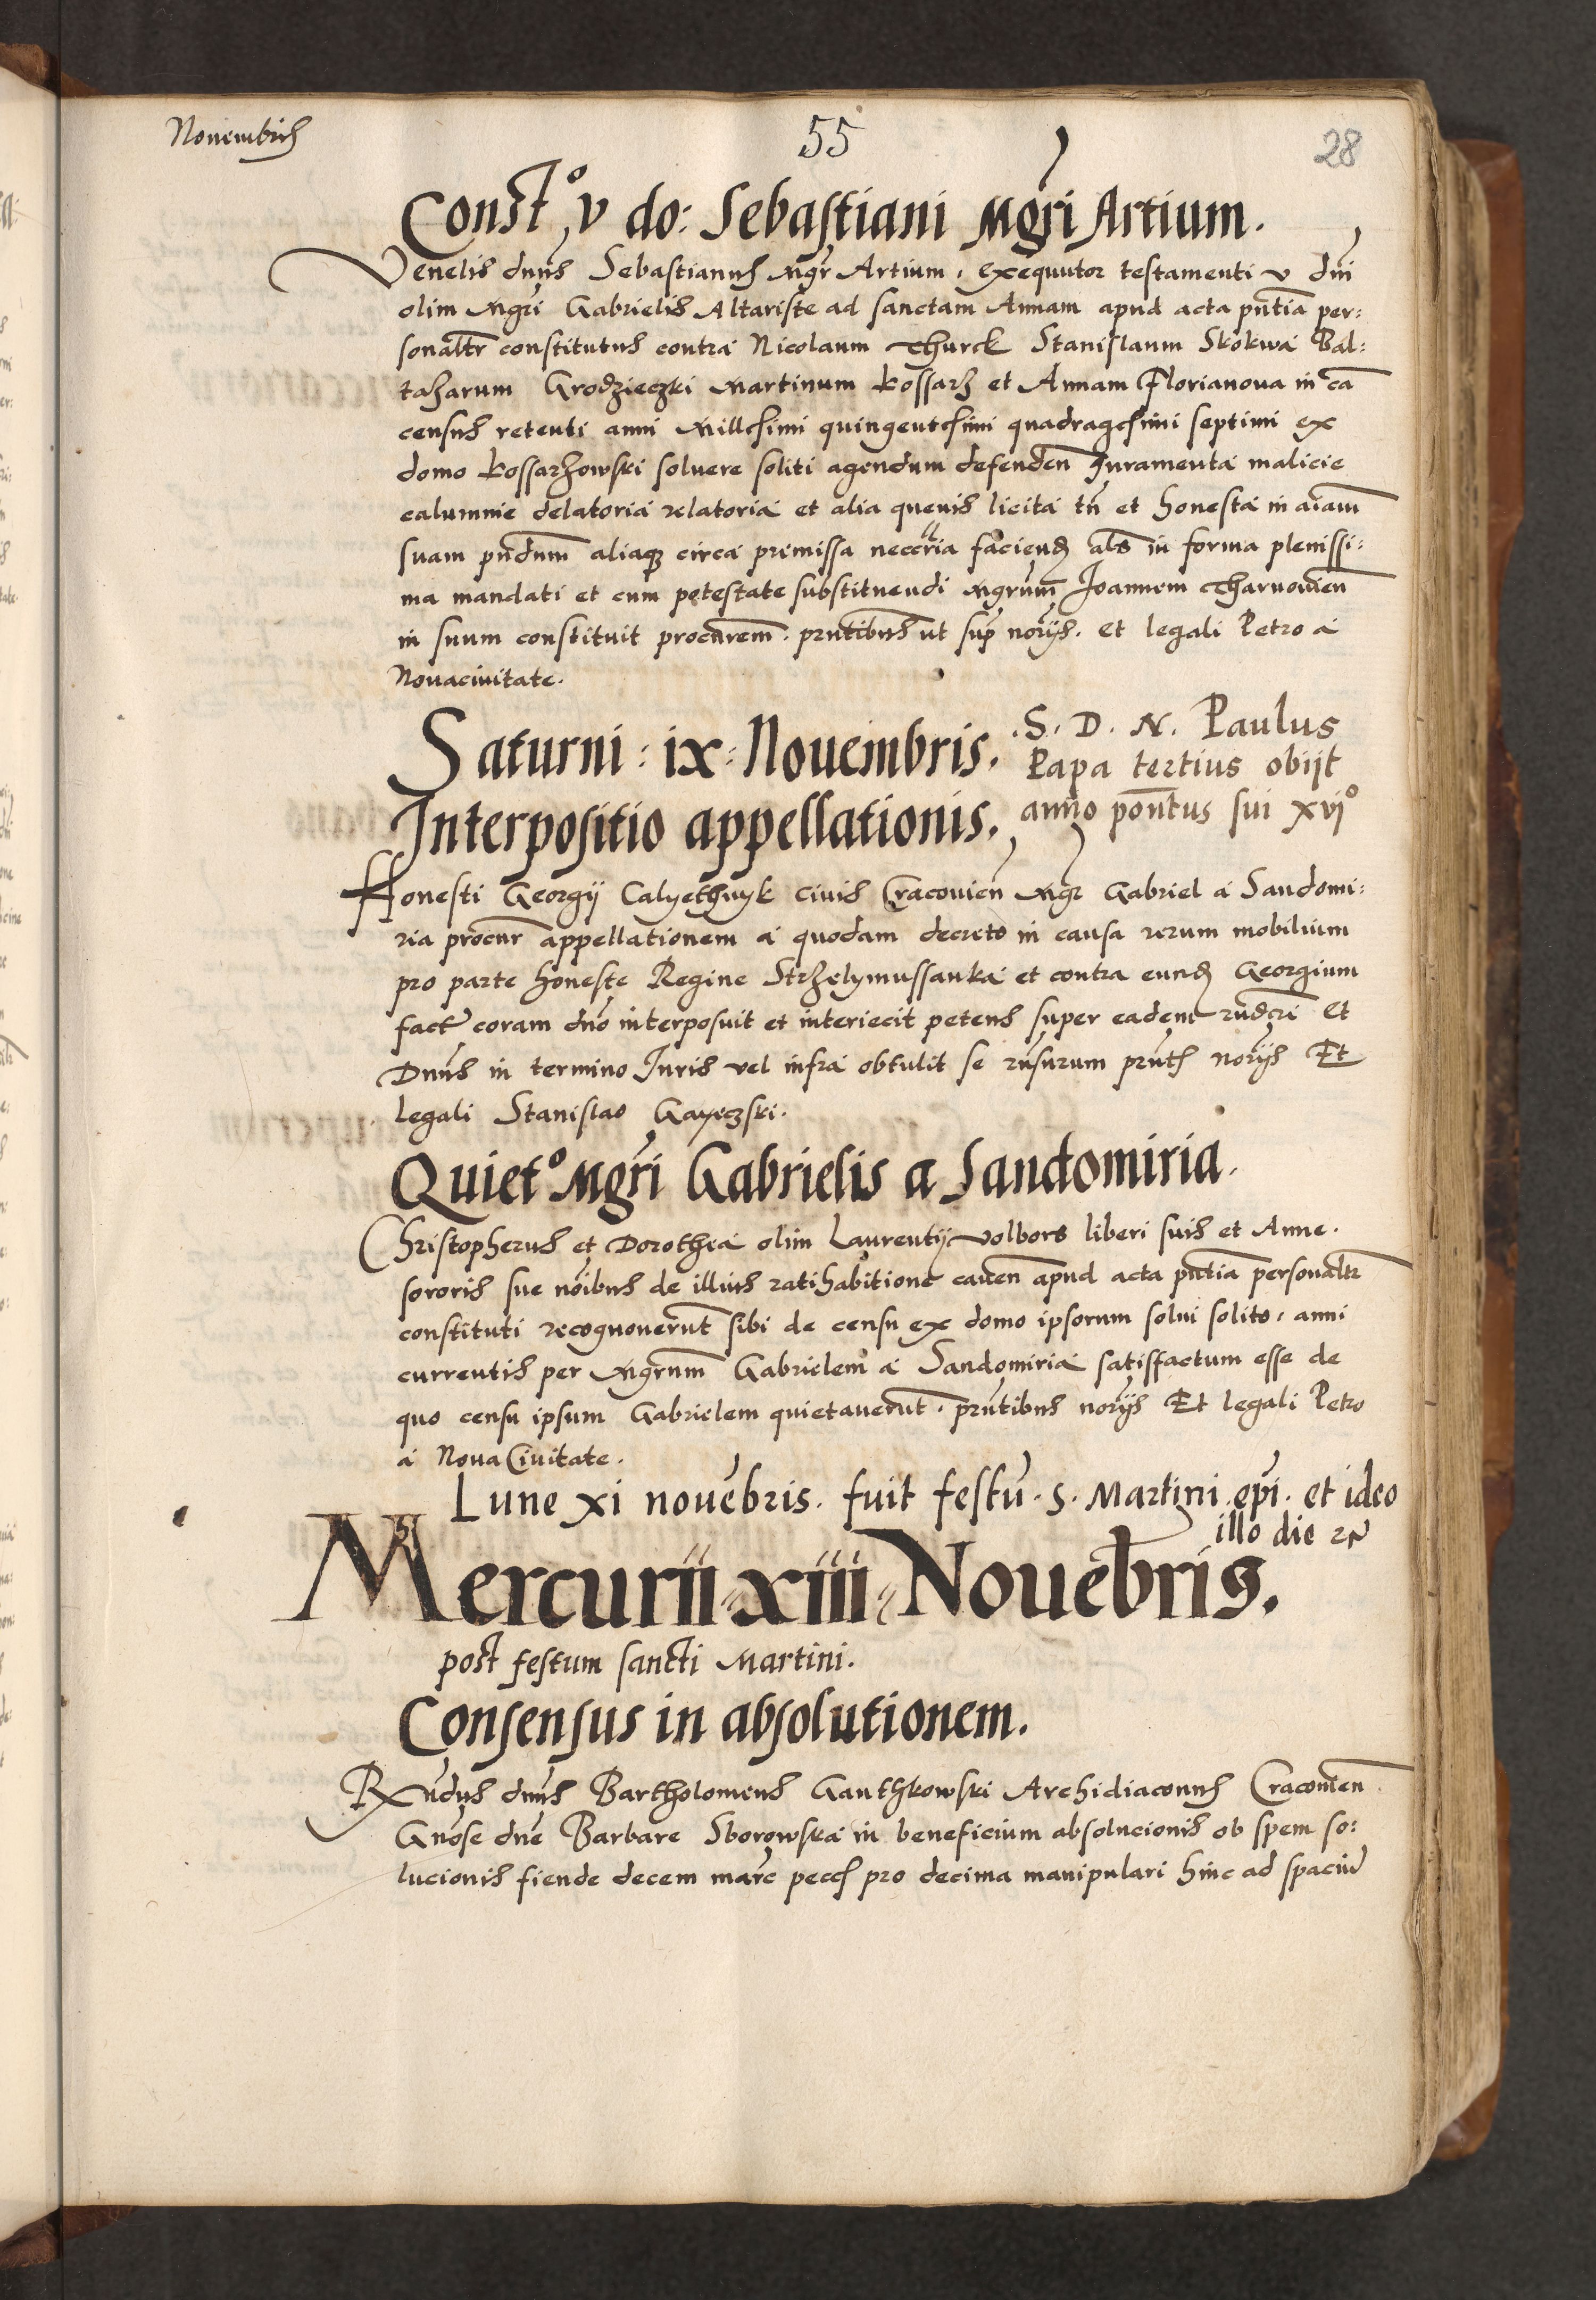 Nouembris
55
28
Constᵒ v do: Sebastiani Mgri Artium.
Venelis dnus Sebastianus Mgr Artium, exequutor testamenti v dni
olim Mgri Gabrielis Altariste ad sanctam Annam apud acta pntia per:
sonaltr constitutus contra Nicolaum Thurck Stanislaum Skokwa Bal:
tazarum Grodzieczki Martinum Kossarz et Annam Florianoua in ca
census retenti anni Millesimi quingentesimi quadragesimi septimi ex
domo Kossarzowski soluere soliti agendum defenden Juramenta malicie
calumnie delatoria relatoria et alia queuis licita tn et honesta in aiam
suam pndum aliaq circa premissa neccria faciend als in forma plenissi:
ma mandati et cum potestate substituendi Mgrum Joannem Tharnouien
in suum constituit procurem. prntibus ut sup norijs. et legali Petro a
Nouaciuitate.
Saturni : ix : Nouembris.
.S. D. N. Paulus
Papa tertius obijt
anno pontus sui xvjᵒ
Interpositio appellationis.
Honesti Georgij Calyethnyk ciuis Cracouien Mgr Gabriel a Sandomi:
ria procur appellationem a quodam decreto in causa rerum mobilium
pro parte honeste Regine Strzelymussanka et contra eund Georgium
fact coram dno interposuit et interiecit petens super eadem rndri Et
Dnus in termino Juris vel infra obtulit se rnsurum prntes norijs Et
legali Stanislao Gayeczski.
Quietᵒ Mgri Gabrielis a Sandomiria.
Christopherus et Dorothea olim Laurentij Volbors liberi suis et Anne.
sororis sue noibus de illius ratihabitione cauen apud acta pntia personaltr
constituti recognouerut sibi de censu ex domo ipsorum solui solito, anni
currentis per Mgrum Gabrielem a Sandomiria satisfactum esse de
quo censu ipsum Gabrielem quietauerut. prntibus norijs Et legali Petro
a Noua Ciuitate.
Lune xi nouebris. fuit festu. S. Martini epi. et ideo
illo die rn
Mercurii xiii Nouebris.
post festum sancti Martini.
Consensus in absolutionem.
Rndus dnus Bartholomeus Ganthkowski Archidiaconus Cracouien
Gnose dne Barbare Sborowska in beneficium absolucionis ob spem so:
lucionis fiende decem marc pecces pro decima manipulari hinc ad spaciu